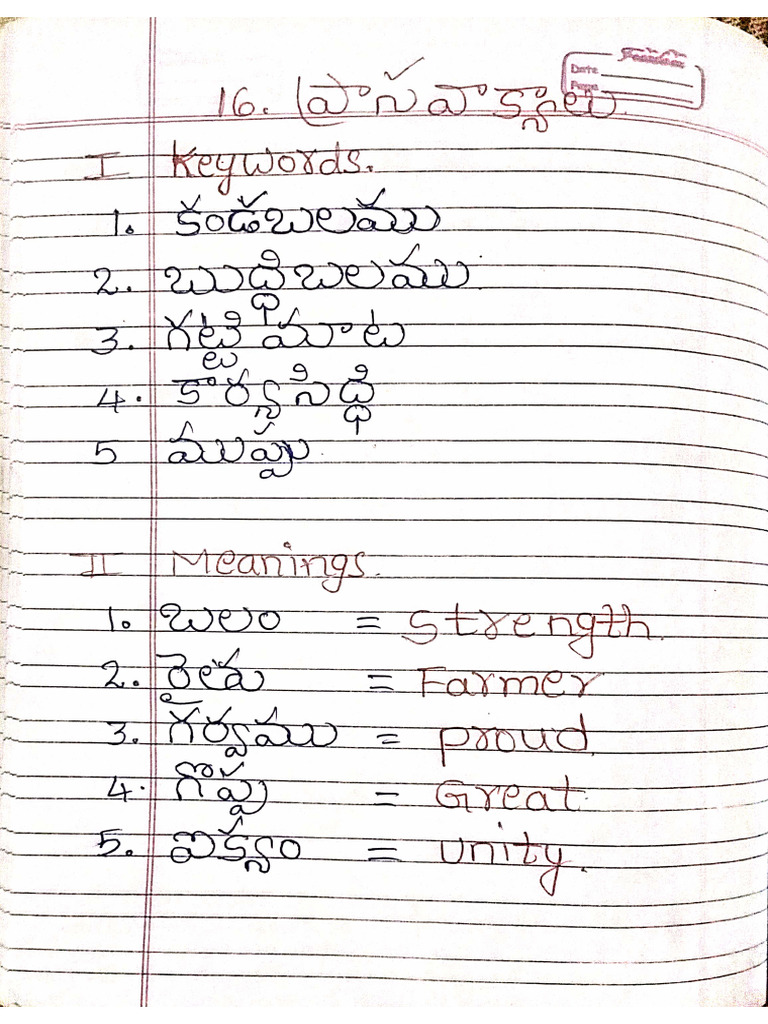 Date
Page
16. ప్రాస వాక్యాలు.
I Keywords.
1. కండబలము
2. బుద్ధిబలము.
3. గట్టి మాట
4. కార్యసిద్ధి
5 ముప్పు.
II Meanings.
1. బలం = strength.
2. రైతు = Farmer
3. గర్వము = proud.
4. గొప్ప = Great.
5. ఐక్యం = unity.